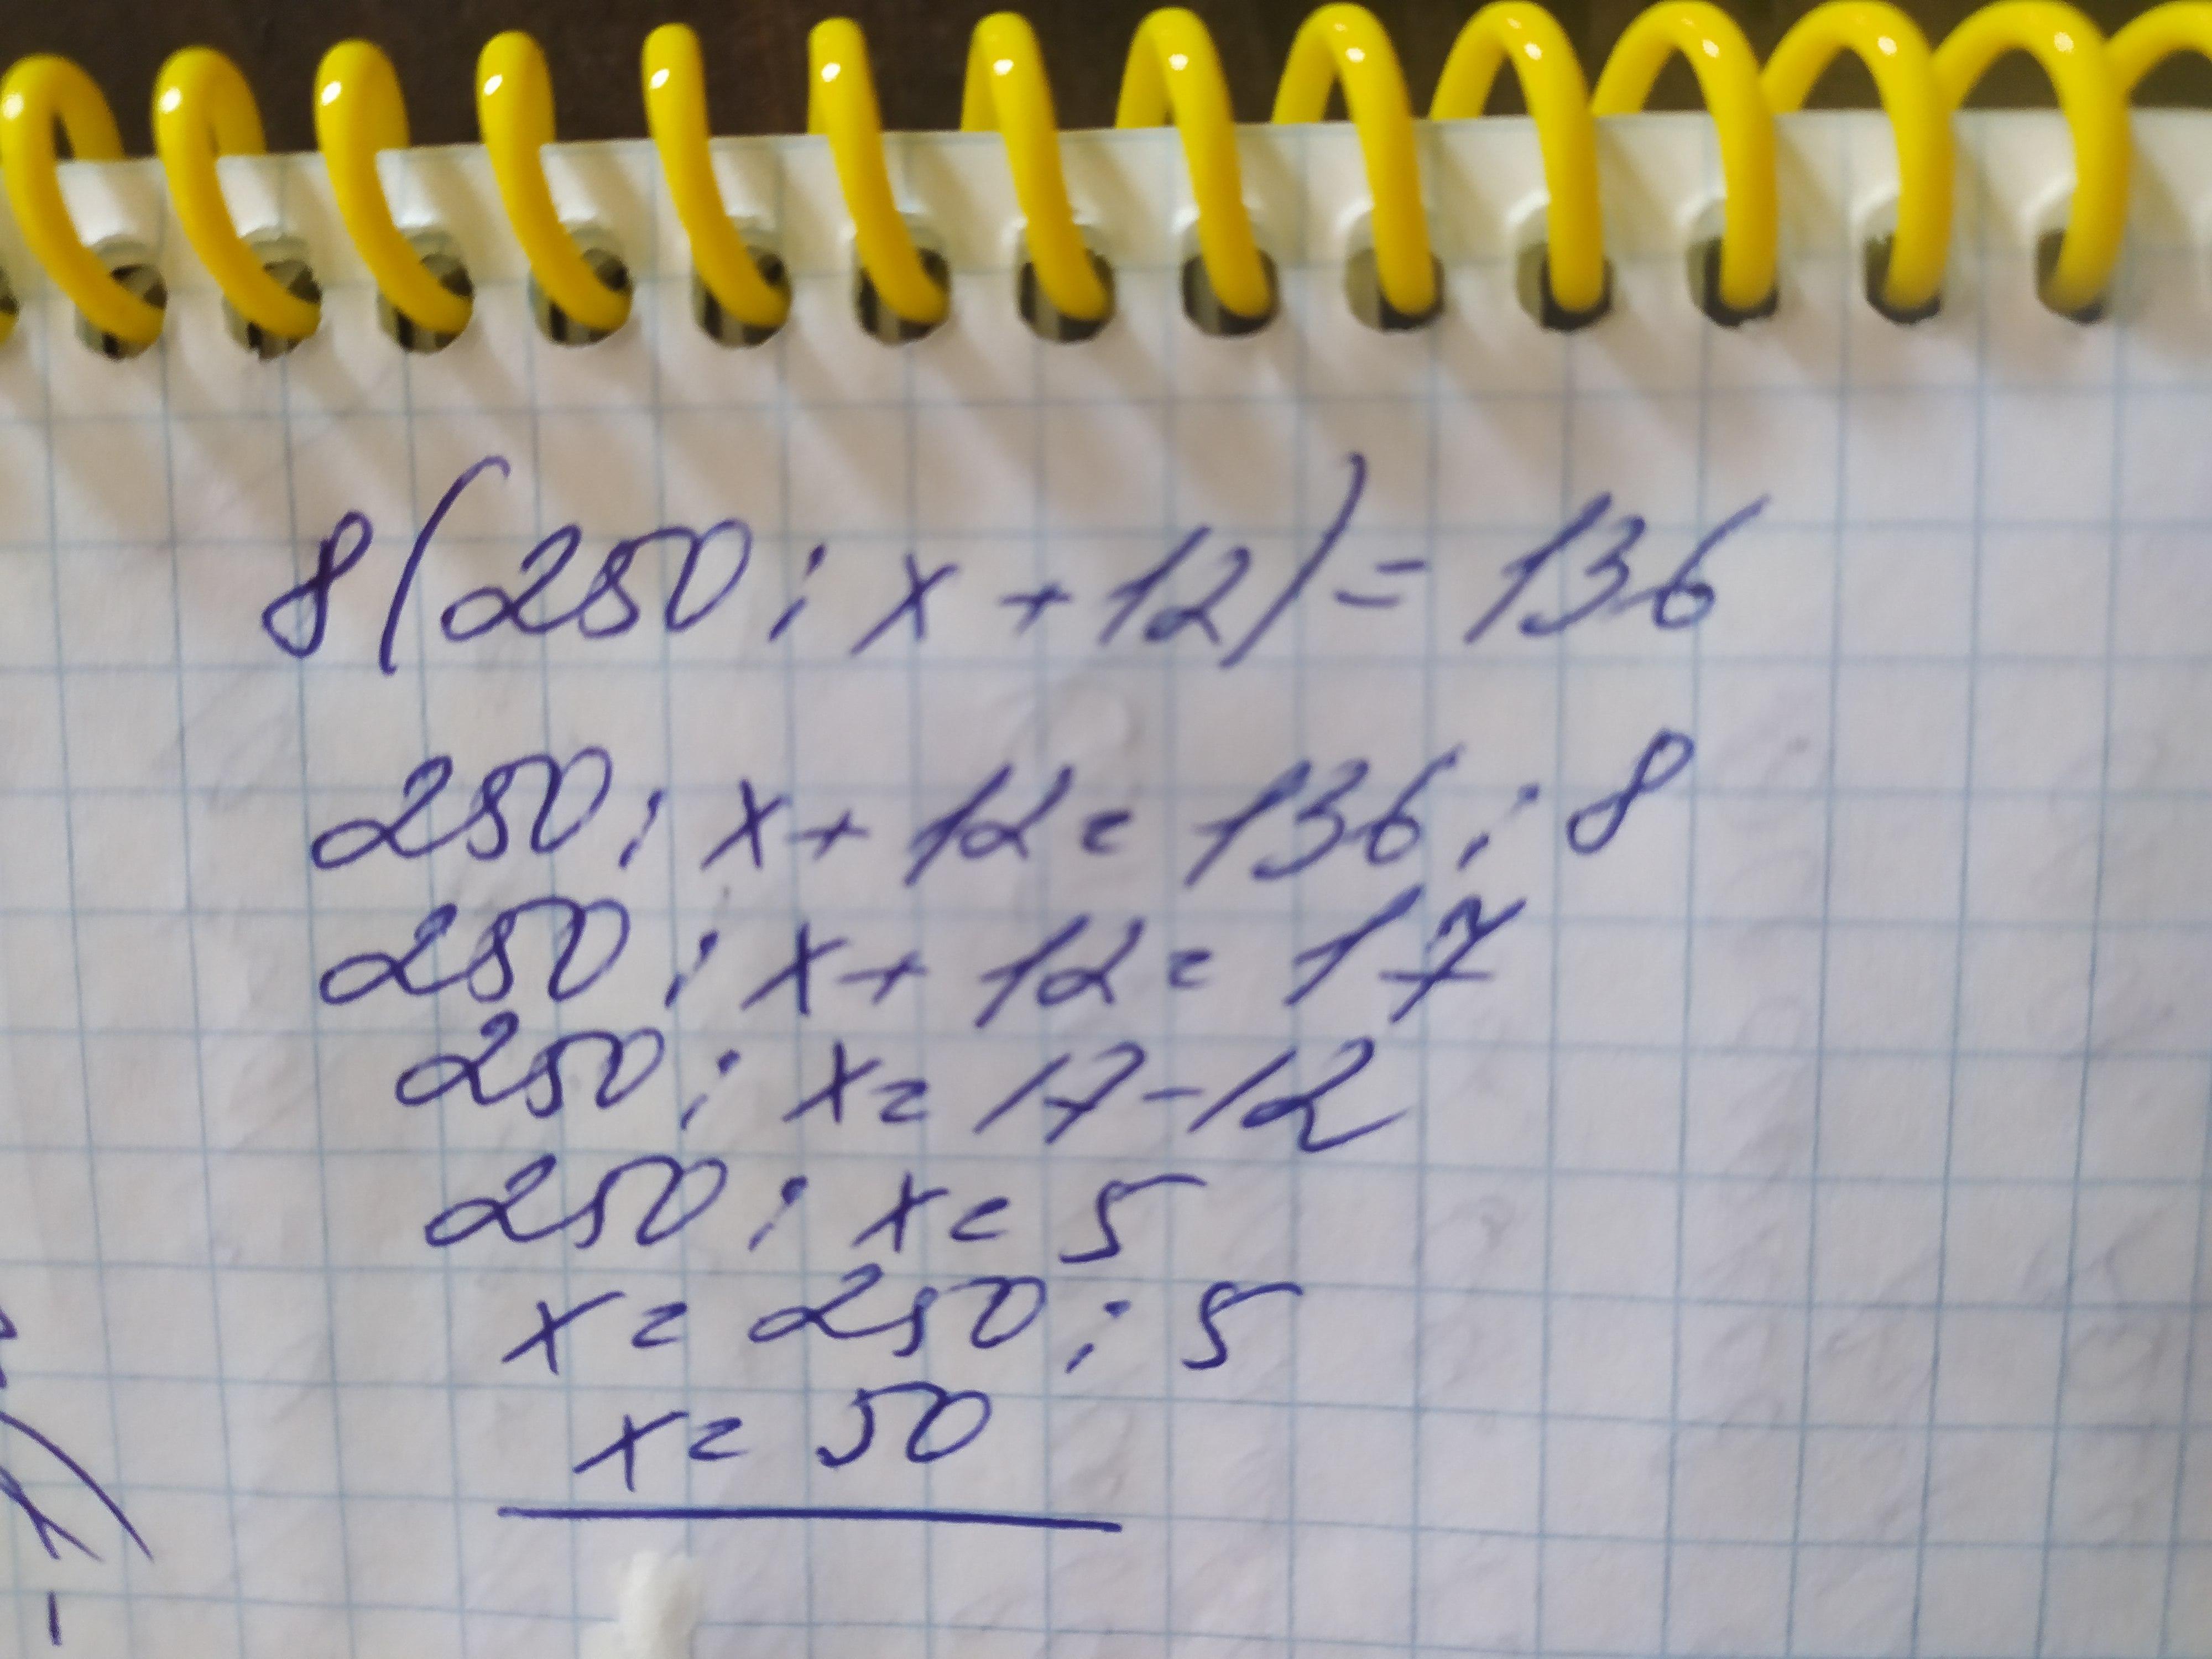 8(250 : x + 12) = 136
250 : x + 12 = 136 : 8
250 : x + 12 = 17
250 : x = 17 - 12
250 : x = 5
x = 250 : 5
x = 50